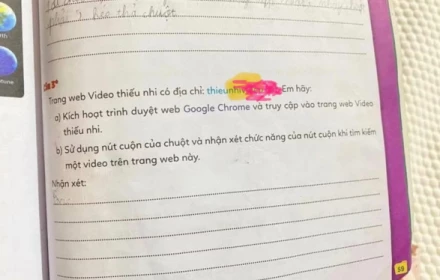 phải 4 kéo thả chuột
Trang web Video thiếu nhi có địa chỉ: Em hãy:
a) Kích hoạt trình duyệt web Google Chrome và truy cập vào trang web Video
thiếu nhi.
b) Sử dụng nút cuộn của chuột và nhận xét chức năng của nút cuộn khi tìm kiếm
một video trên trang web này.
Nhận xét: